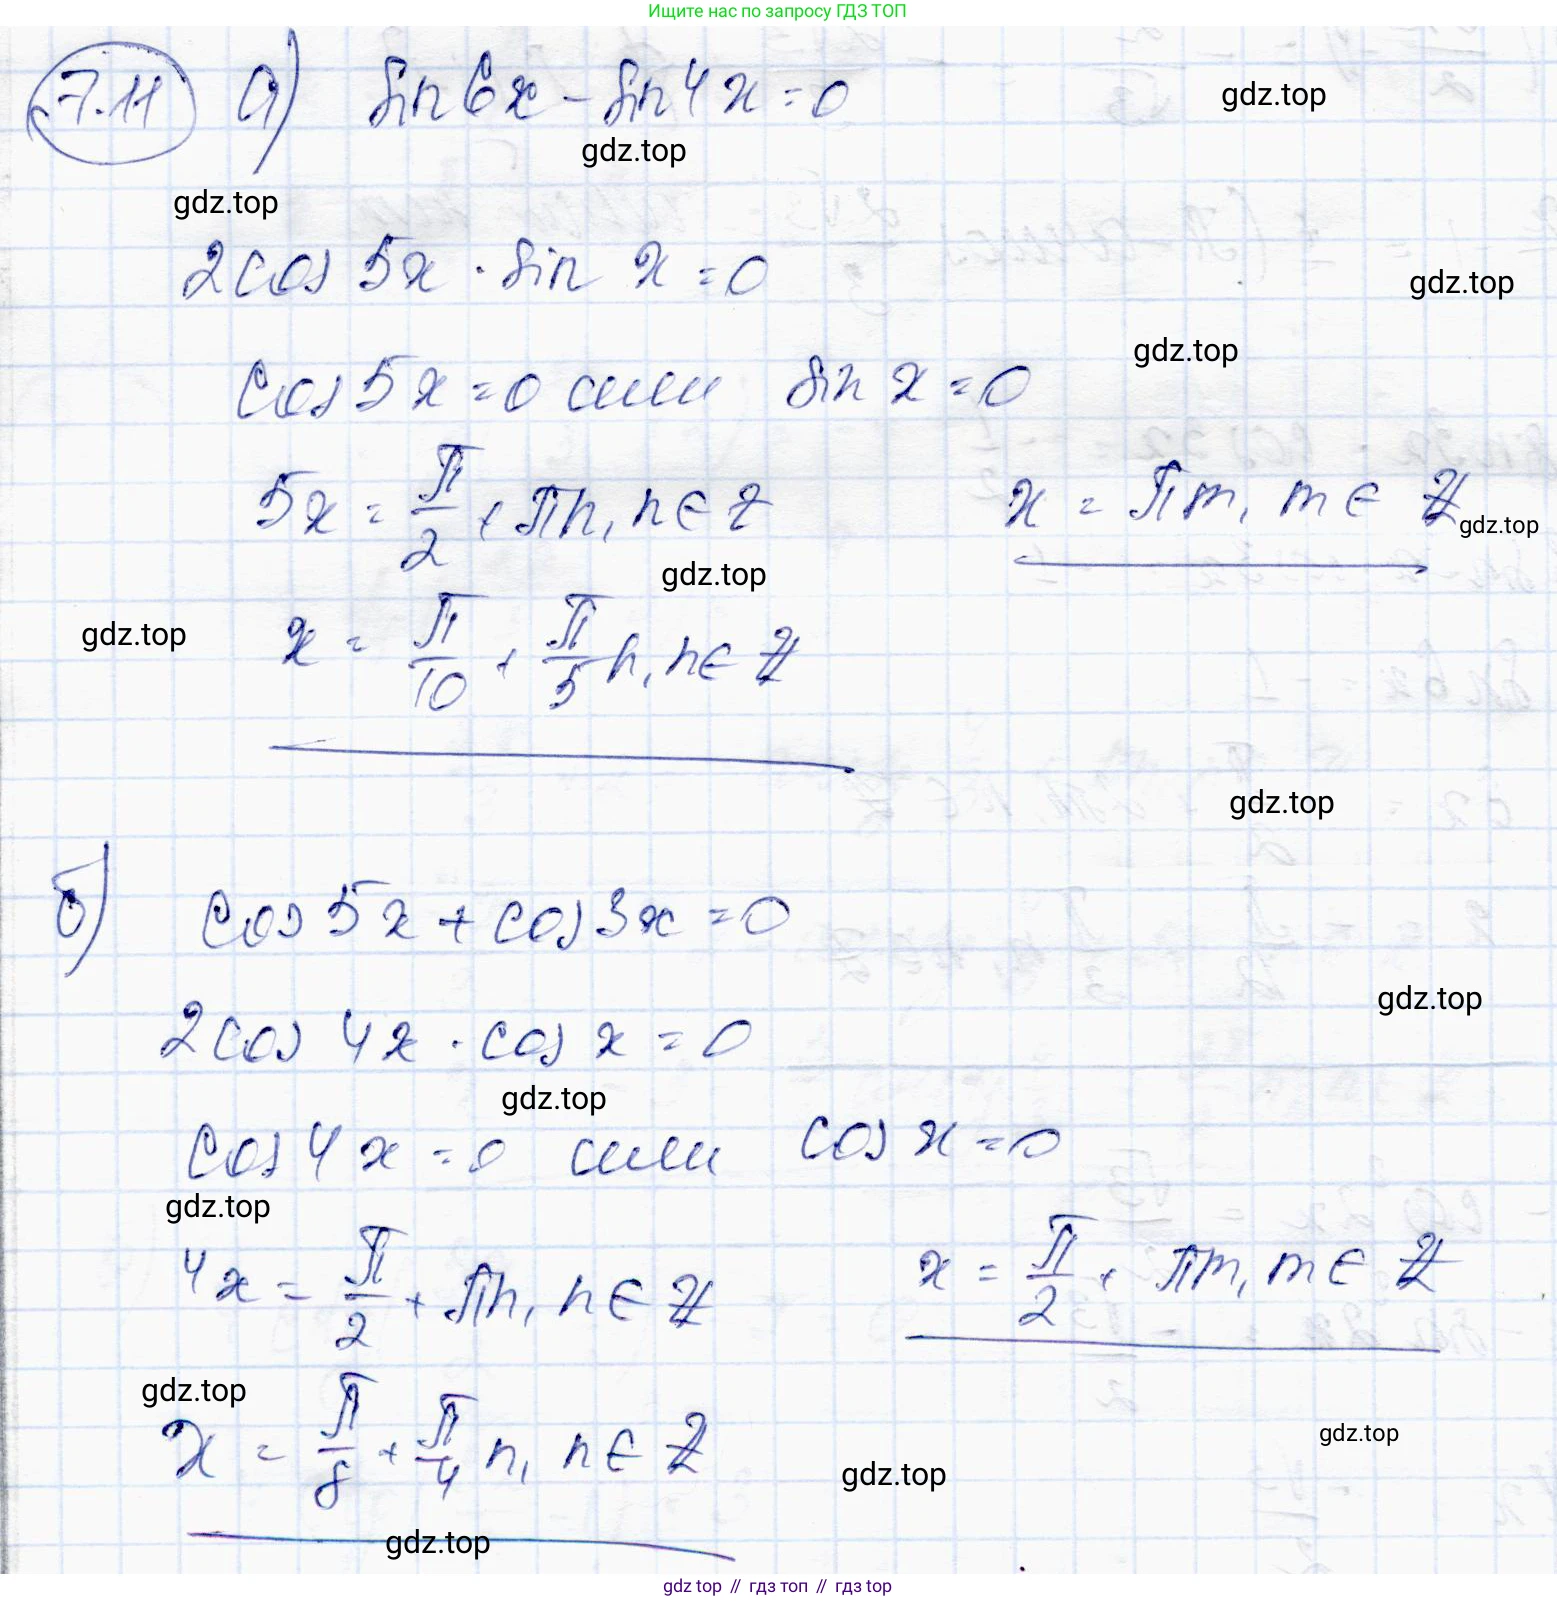 Ищите нас по запросу ГДЗ ТОП
7.11 а) sin 6x - sin 4x = 0
gdz.top
gdz.top
gdz.top
2cos 5x · sin x = 0
gdz.top
gdz.top
cos 5x = 0 или sin x = 0
5x = π/2 + πn, n ∈ Z
x = πm, m ∈ Z
gdz.top
gdz.top
gdz.top
x = π/10 + π/5 n, n ∈ Z
gdz.top
б) cos 5x + cos 3x = 0
gdz.top
2cos 4x · cos x = 0
gdz.top
cos 4x = 0 или cos x = 0
gdz.top
4x = π/2 + πn, n ∈ Z
x = π/2 + πm, m ∈ Z
gdz.top
x = π/8 + π/4 n, n ∈ Z
gdz.top
gdz.top
gdz.top
gdz top // гдз топ // гдз top